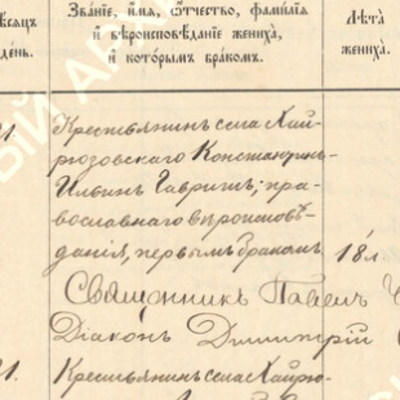 ѣсяцъ
день.
Зва́нїе, и҆́мя, ѻ҆́тчество, фами́лїя
и҆ вѣроисповѣ́данїе жениха̀,
и҆ кото́рымъ бра́комъ.
Лѣ́та
жениха̀.
21.
Крестьянинъ села Хай-
рюзовскаго Константинъ
Ильинъ Гавришъ; пра-
вославнаго вѣроисповѣ-
данія, первымъ бракомъ
18 л
Священникъ Павелъ
Діаконъ Димитрій
21.
Крестьянинъ села Хайрю-